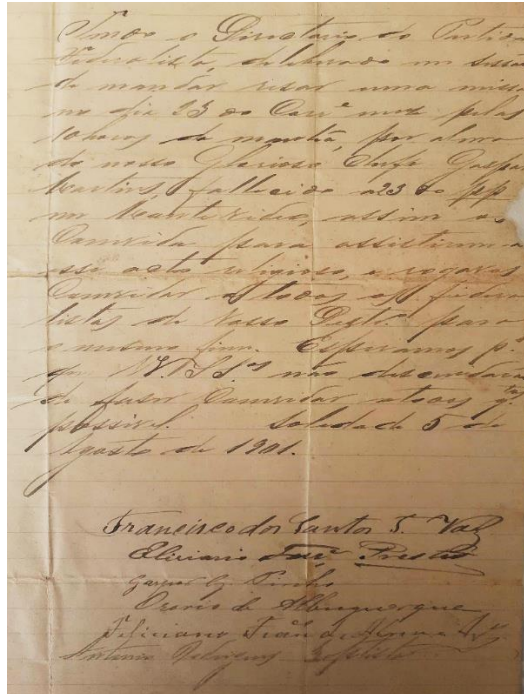 Tendo o Directorio do Partido
Federalista, deliberado em sessão
de mandar resar uma missa
no dia 23 do Corr.e mez pelas
10 horas da manhã, por alma
do nosso Glorioso Chefe Gaspar
Martins, fallecido a 23 do pp
em Montevideo, assim os
Convida para assistirem a
esse acto religioso, e rogaros
Convidar a todos os federa
listas do Vosso Destr.o para
o mesmo fim. Esperamos p.
que não
de faser Convidar atodos q.
possivel. Soledade 5 de
Agosto de 1901.
Francisco dos Santos Vaz
Prestes
Pinho
Osorio de Albuquerque
Feliciano
Antonio Baptista